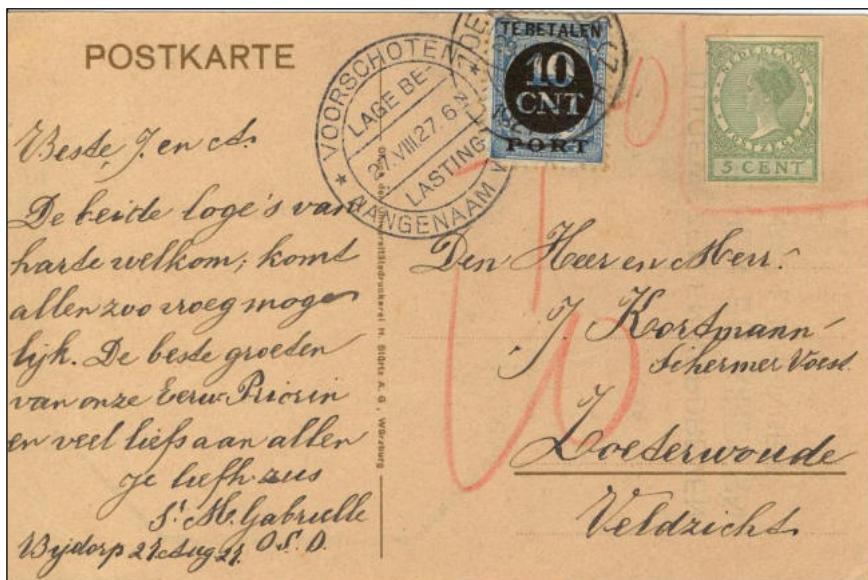 POSTKARTE
VOORSCHOTEN
LAGE BE-
27.VIII.27. 6 N
LASTING
AANGENAAM W
TE BETALEN
10
CNT
PORT
NEDERLAND
POSTZEGEL
5 CENT
Beste J. en A.
De beide logé's van
harte welkom; komt
allen zoo vroeg moge
lijk. De beste groeten
van onze Eerw. Priorin
en veel liefs aan allen
je liefh. zus
Sr. M. Gabrielle
Bijdorp 27 Aug 27. O.S.D.
H. Stürtz A. G., Würzburg
Den Heer en Mevr.
J. Kortmann
Zoeterwoude
Veldzicht
10